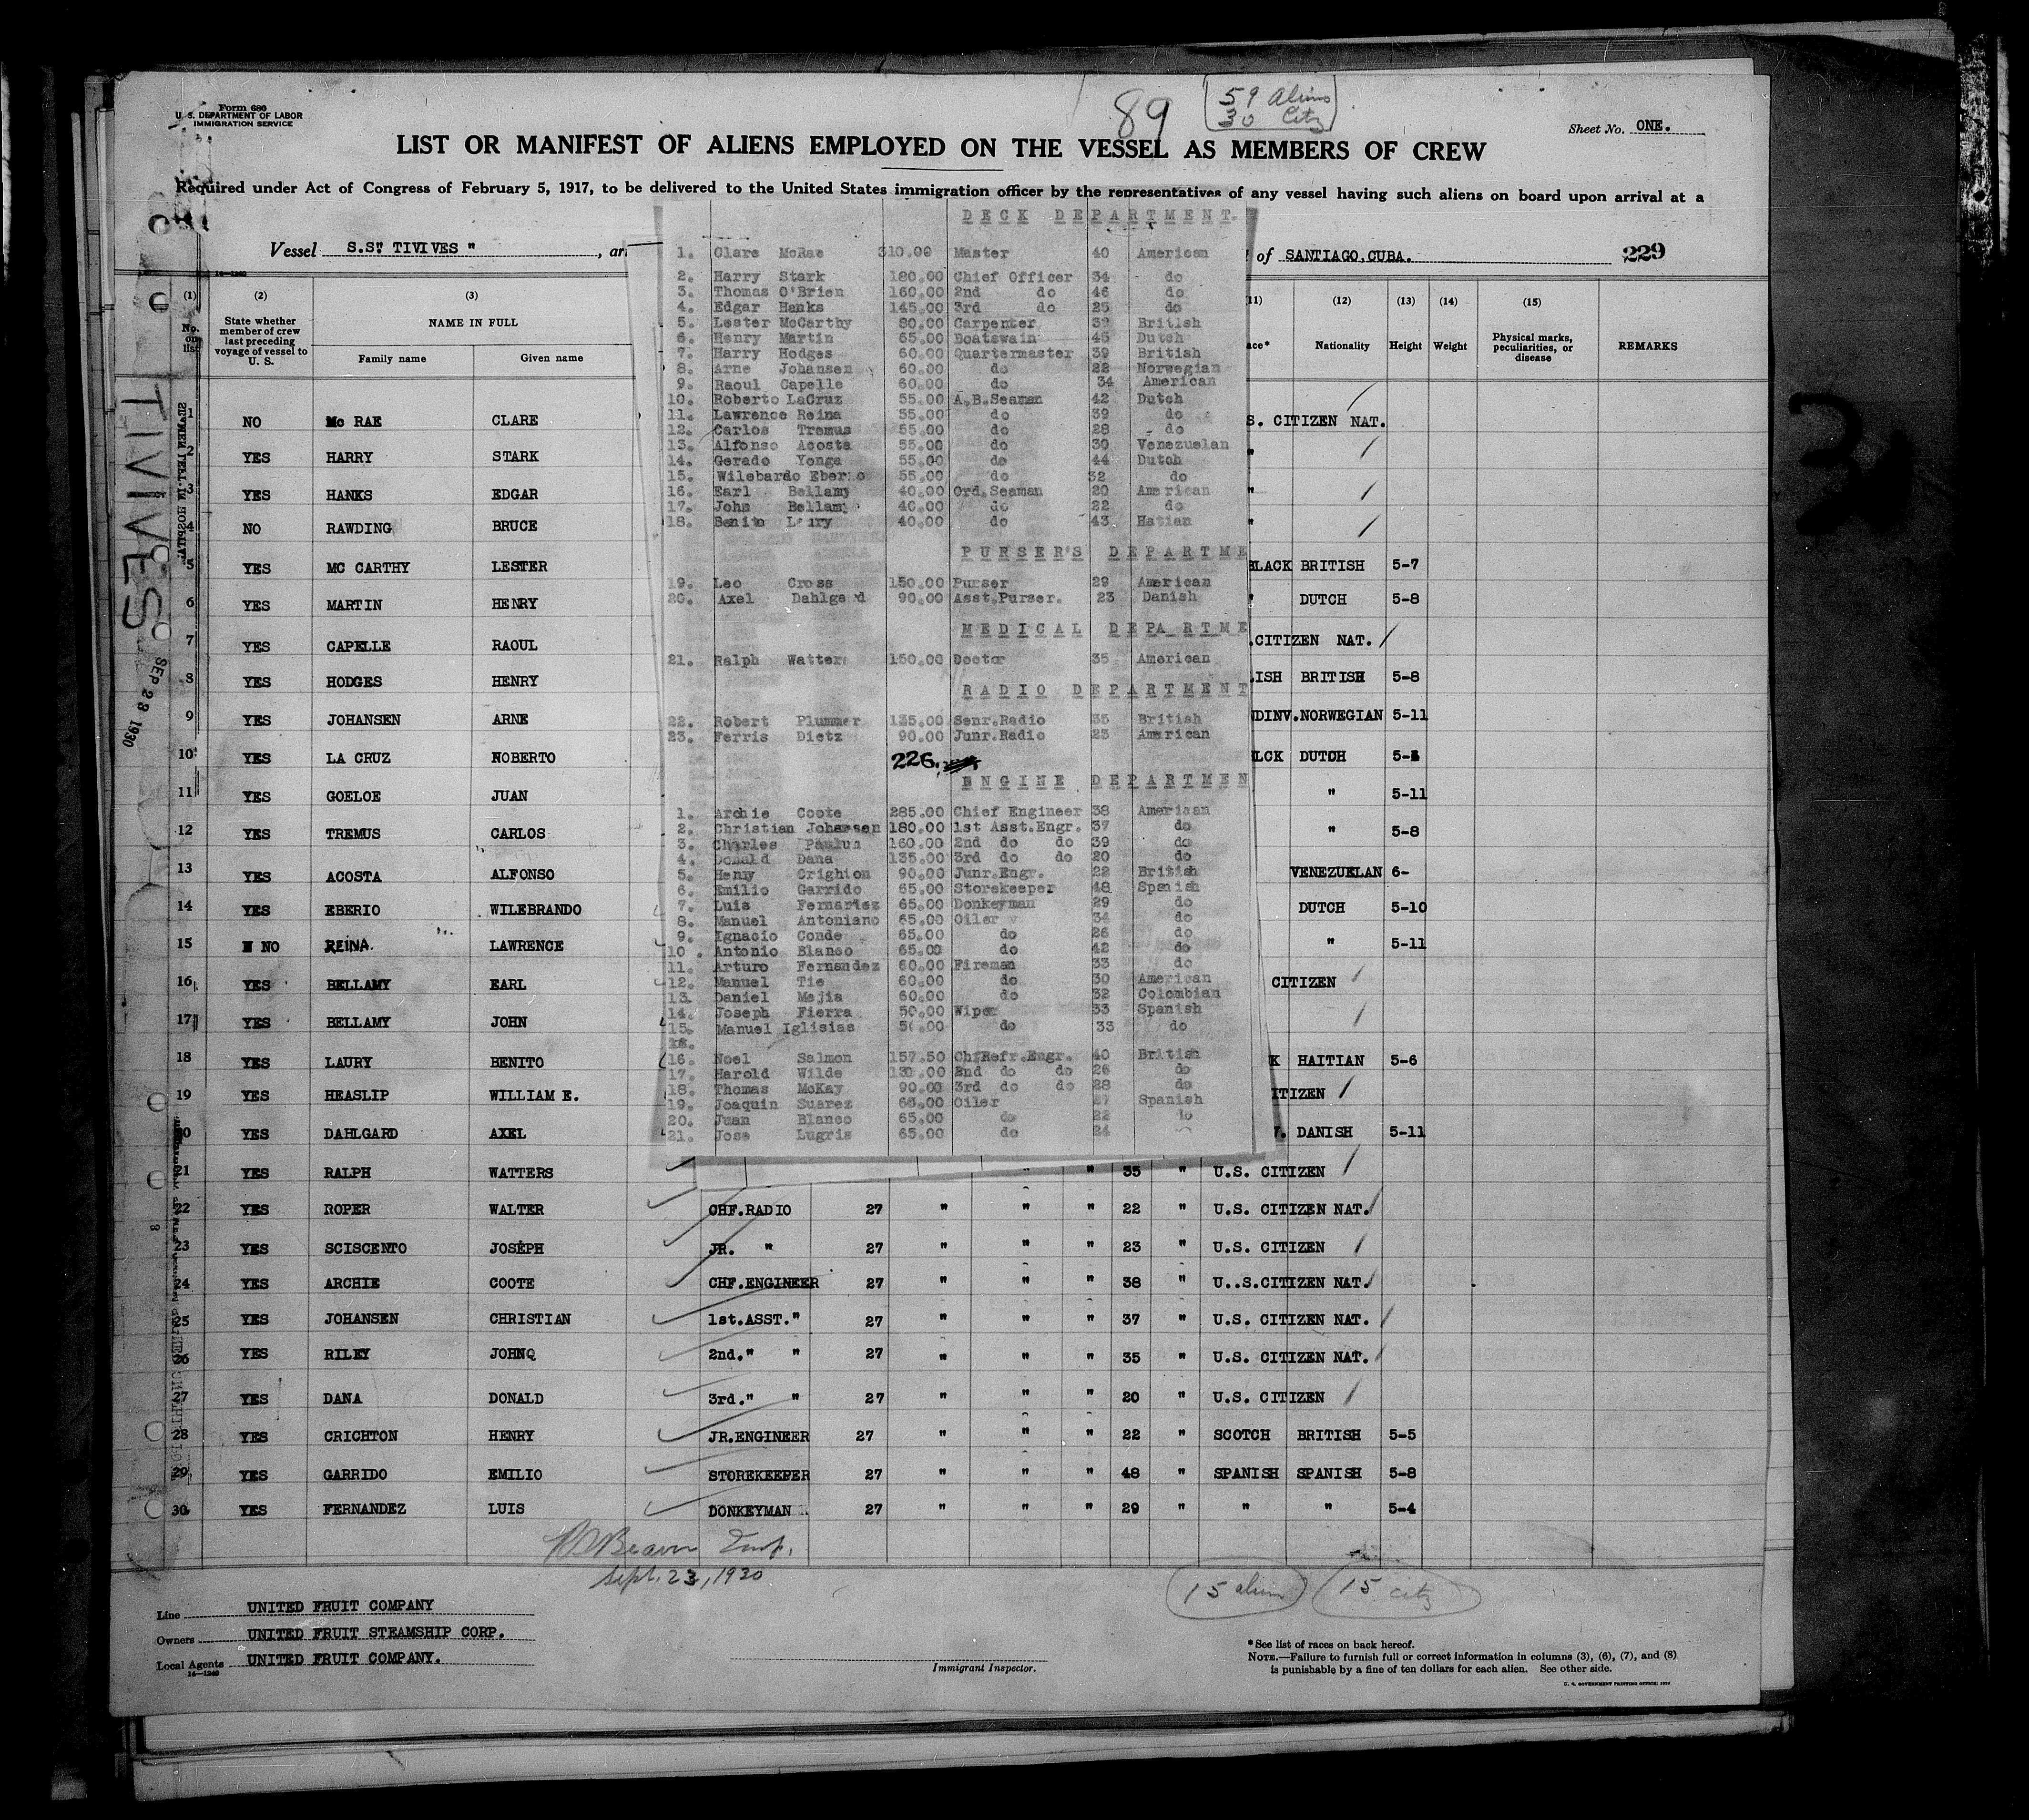 Form 680
U. S. DEPARTMENT OF LABOR
IMMIGRATION SERVICE
89
59 Aliens
30 Citz
Sheet No. ONE.
LIST OR MANIFEST OF ALIENS EMPLOYED ON THE VESSEL AS MEMBERS OF CREW
Required under Act of Congress of February 5, 1917, to be delivered to the United States immigration officer by the representatives of any vessel having such aliens on board upon arrival at a
Vessel S.S." TIVIVES ", of SANTIAGO, CUBA. 229
(1) (2) (3) (11) (12) (13) (14) (15)
No. on list
State whether member of crew last preceding voyage of vessel to U. S.
NAME IN FULL
Family name Given name
Nationality Height Weight
Physical marks, peculiarities, or disease
REMARKS
TIVIVES
SEP 23 1930
1 NO Mc RAE CLARE S. CITIZEN NAT.
2 YES HARRY STARK "
3 YES HANKS EDGAR "
4 NO RAWDING BRUCE "
5 YES MC CARTHY LESTER BLACK BRITISH 5-7
6 YES MARTIN HENRY " DUTCH 5-8
7 YES CAPELLE RAOUL .CITIZEN NAT.
8 YES HODGES HENRY LISH BRITISH 5-8
9 YES JOHANSEN ARNE DINV. NORWEGIAN 5-11
10 YES LA CRUZ NOBERTO LCK DUTCH
11 YES GOELOE JUAN " 5-11
12 YES TREMUS CARLOS " 5-8
13 YES ACOSTA ALFONSO VENEZUELAN 6-
14 YES EBERIO WILEBRANDO DUTCH 5-10
15 NO REINA LAWRENCE " 5-11
16 YES BELLAMY EARL CITIZEN
17 YES BELLAMY JOHN
18 YES LAURY BENITO K HAITIAN 5-6
19 YES HEASLIP WILLIAM E. ITIZEN
20 YES DAHLGARD AXEL . DANISH 5-11
21 YES RALPH WATTERS " " 35 " U.S. CITIZEN
22 YES ROPER WALTER CHF.RADIO 27 " " " 22 " U.S. CITIZEN NAT.
23 YES SCISCENTO JOSEPH JR. " 27 " " " 23 " U.S. CITIZEN
24 YES ARCHIE COOTE CHF.ENGINEER 27 " " " 38 " U..S.CITIZEN NAT.
25 YES JOHANSEN CHRISTIAN 1st.ASST." 27 " " " 37 " U.S. CITIZEN NAT.
26 YES RILEY JOHNQ 2nd." " 27 " " " 35 " U.S. CITIZEN NAT.
27 YES DANA DONALD 3rd." " 27 " " " 20 " U.S. CITIZEN
28 YES CRICHTON HENRY JR.ENGINEER 27 " " " 22 " SCOTCH BRITISH 5-5
29 YES GARRIDO EMILIO STOREKEEPER 27 " " " 48 " SPANISH SPANISH 5-8
30 YES FERNANDEZ LUIS DONKEYMAN 27 " " " 29 " " " 5-4
DECK DEPARTMENT.
1. Clare McRae 310.00 Master 40 American
2. Harry Stark 180.00 Chief Officer 34 do
3. Thomas O'Brien 160.00 2nd do 46 do
4. Edgar Hanks 145.00 3rd do 25 do
5. Lester McCarthy 80.00 Carpenter 39 British
6. Henry Martin 65.00 Boatswain 45 Dutch
7. Harry Hodges 60.00 Quartermaster 39 British
8. Arne Johansen 60.00 do 22 Norwegian
9. Raoul Capelle 60.00 do 34 American
10. Roberto LaCruz 55.00 A.B.Seaman 42 Dutch
11. Lawrence Reina 55.00 do 39 do
12. Carlos Tremus 55.00 do 28 do
13. Alfonso Acosta 55.00 do 30 Venezuelan
14. Gerado Yonga 55.00 do 44 Dutch
15. Wilebardo Eberio 55.00 do 32 do
16. Earl Bellamy 40.00 Ord.Seaman 20 American
17. John Bellamy 40.00 do 22 do
18. Benito Laury 40.00 do 43 Hatian
PURSER'S DEPARTME
19. Leo Cross 150.00 Purser 29 American
20. Axel Dahlgard 90.00 Asst.Purser. 23 Danish
MEDICAL DEPARTME
21. Ralph Watters 150.00 Doctor 35 American
RADIO DEPARTMENT
22. Robert Plummer 135.00 Senr.Radio 35 British
23. Ferris Dietz 90.00 Junr.Radio 23 American
226.
ENGINE DEPARTMEN
1. Archie Coote 285.00 Chief Engineer 38 American
2. Christian Johansen 180.00 1st Asst.Engr. 37 do
3. Charles Paulun 160.00 2nd do do 39 do
4. Donald Dana 135.00 3rd do do 20 do
5. Henry Crighton 90.00 Junr.Engr. 22 British
6. Emilio Garrido 65.00 Storekeeper 48 Spanish
7. Luis Fernandez 65.00 Donkeyman 29 do
8. Manuel Antoniano 65.00 Oiler 34 do
9. Ignacio Conde 65.00 do 26 do
10. Antonio Blanco 65.00 do 42 do
11. Arturo Fernandez 60.00 Fireman 33 do
12. Manuel Tie 60.00 do 30 American
13. Daniel Mejia 60.00 do 32 Colombian
14. Joseph Fierra 50.00 Wiper 33 Spanish
15. Manuel Iglisias 50.00 do 33 do
16. Noel Salmon 157.50 Ch.Refr.Engr. 40 British
17. Harold Wilde 130.00 2nd do do 26 do
18. Thomas McKay 90.00 3rd do do 28 do
19. Joaquin Suarez 65.00 Oiler 27 Spanish
20. Juan Blanco 65.00 do 22 do
21. Jose Lugris 65.00 do 24
Sept. 23, 1930
15 aliens 15 citz
Line UNITED FRUIT COMPANY
Owners UNITED FRUIT STEAMSHIP CORP.
Local Agents UNITED FRUIT COMPANY.
14—1240
Immigrant Inspector.
*See list of races on back hereof.
NOTE.—Failure to furnish full or correct information in columns (3), (6), (7), and (8)
is punishable by a fine of ten dollars for each alien. See other side.